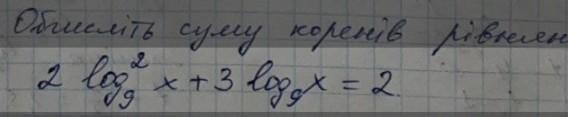 Обчисліть суму коренів рівнян
2 log₉² x + 3 log₉ x = 2.